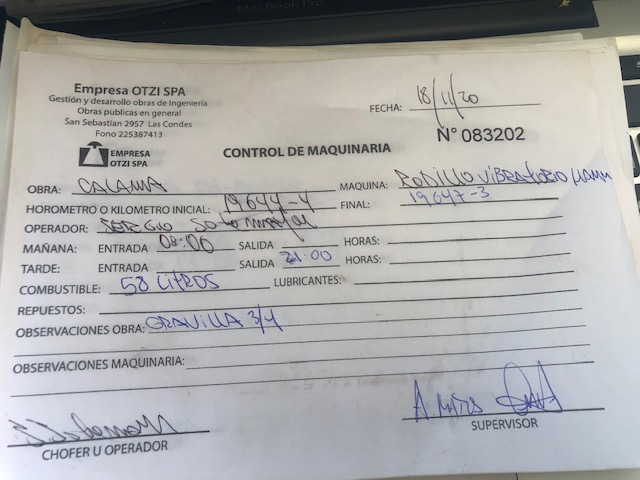 Empresa OTZI SPA
Gestión y desarrollo obras de Ingeniería
Obras públicas en general
San Sebastián 2957 Las Condes
Fono 225387413
EMPRESA
OTZI SPA
FECHA: 18/11/20
CONTROL DE MAQUINARIA
N° 083202
OBRA: CALAMA MAQUINA: RODILLO VIBRATORIO HAMM
HOROMETRO O KILOMETRO INICIAL: 19644-4 FINAL: 19647-3
OPERADOR: SERGIO Soto
MAÑANA: ENTRADA 08:00 SALIDA HORAS:
TARDE: ENTRADA SALIDA 21:00 HORAS:
COMBUSTIBLE: 58 LITROS LUBRICANTES:
REPUESTOS:
OBSERVACIONES OBRA: GRAVILLA 3/4
OBSERVACIONES MAQUINARIA:
CHOFER U OPERADOR SUPERVISOR
MacBook